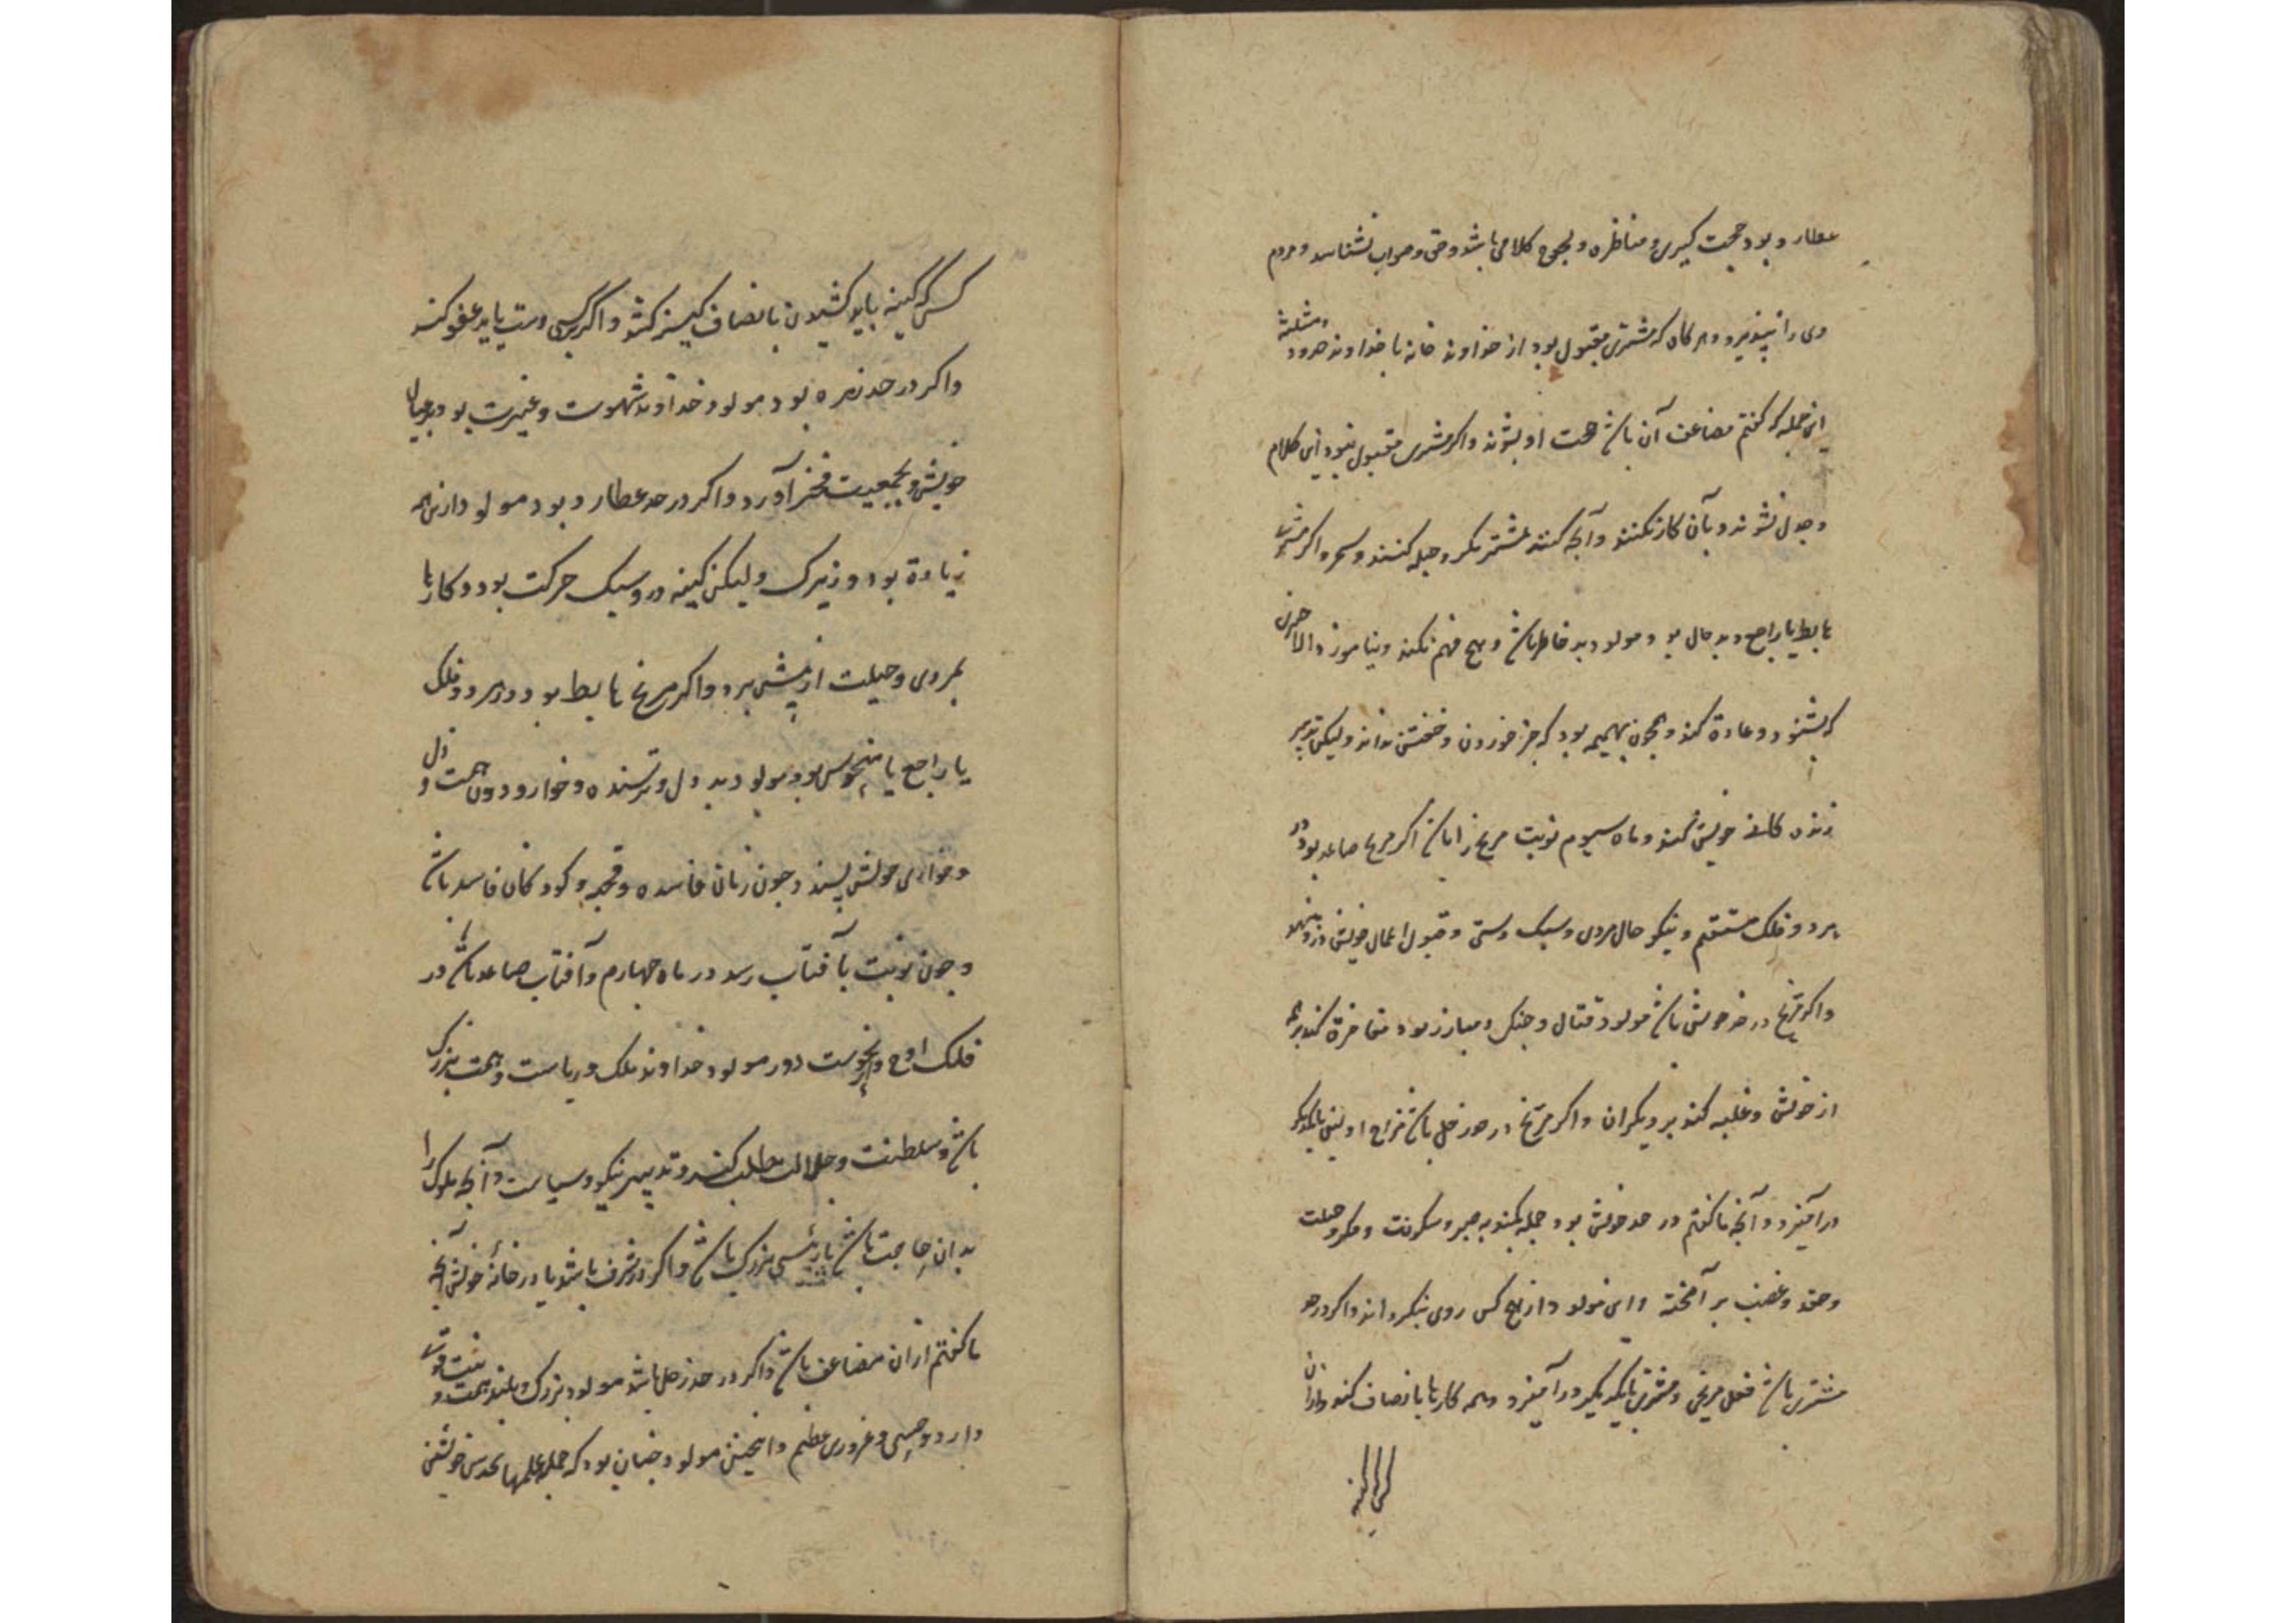 عطارد بود حجت گیری و مناظره و لجوج کلامی باشد و حق و صواب نشناسد و مردم
وی را نپذیرد و هرگاه که مشتری مقبول بود از خداوند خانه یا خداوند حد و مثلثه
این جمله که گفتم مضاعف آن باشد حجت او بشوند و اگر مشتری مقبول نبود این کلام
و جدل نشوند و بآن کار نکنند و آنچه کنند بیشتر مکر و حیله کنند و اگر مشتری
هابط یا راجع و بد حال بود مولود بد خاطر باشد و هیچ فهم نکند و نیاموزد الا چیزی
که بشنود و عادة کند و همچون بهیمه بود که جز خوردن و خفتن نداند ولیکن تدبیر
زنده کانی خویش کند و ماه سیوم نوبت مریخ را باشد اکر مریخ صاعد بود در
هر دو فلک مستقیم و نیکو حال مردی و سبک دستی و قبول اعمال خویش
و اکر مریخ در حد خویش باشد مولود قتال و جنکی و مبارز بود مفاخرة کند
از خویش و غلبه کند بر دیکران و اکر مریخ در حد زحل باشد مزاج او
درآمیزد و آنچه ما گفتم در حد خویش بود جمله بکند به صبر و سکونت و مکر و حیلت
و حقد و غضب بر آمخته و این مولود از هیچ کس روی نکرداند و اکر در حد
مشتری باشد فعل مریخی و مشتری با یکدیکر درآمیزد و همه کارها بانصاف کند و از آن
کس که کینه باید کشیدن بانصاف کینه کشد و اکر کسی دست یابد عفو کند
و اکر در حد زهره بود مولود خداوند شهوت و غیرت بود بر عیال
خویش و بجمعیت فخر آورد و اکر در حد عطارد بود مولود از این همه
زیادة بود و زیرک ولیکن کینه در و سبک حرکت بود و کارها
بمردی و حیلت از پیش برد و اکر مریخ هابط بود در هر دو فلک
یا راجع یا منحوس بود مولود بد دل و ترسنده و خوار و دون همت و ذل
و خواری خویش پسندد چون زنان فاسده و قحبه و کودکان فاسد باشد
و چون نوبت بآفتاب رسد در ماه چهارم و آفتاب صاعد باشد در
فلک اوج و از نحوست دور مولود خداوند ملک و ریاست و همت بزرک
باشد و سلطنت و جلالت طلب کند و تدبیر نیکو و سیاست و آنچه ملوک را
بدان حاجت باشد یا رئیسی بزرک باشد و اکر در شرف باشد یا در خانهٔ خویش آنچه
ما گفتم از آن مضاعف باشد و اکر در حد زحل باشد مولود بزرک و بلند همت و
دارد و غروری عظیم و اینچنین مولود چنان بود که جمله علمها بحدس خویشتن